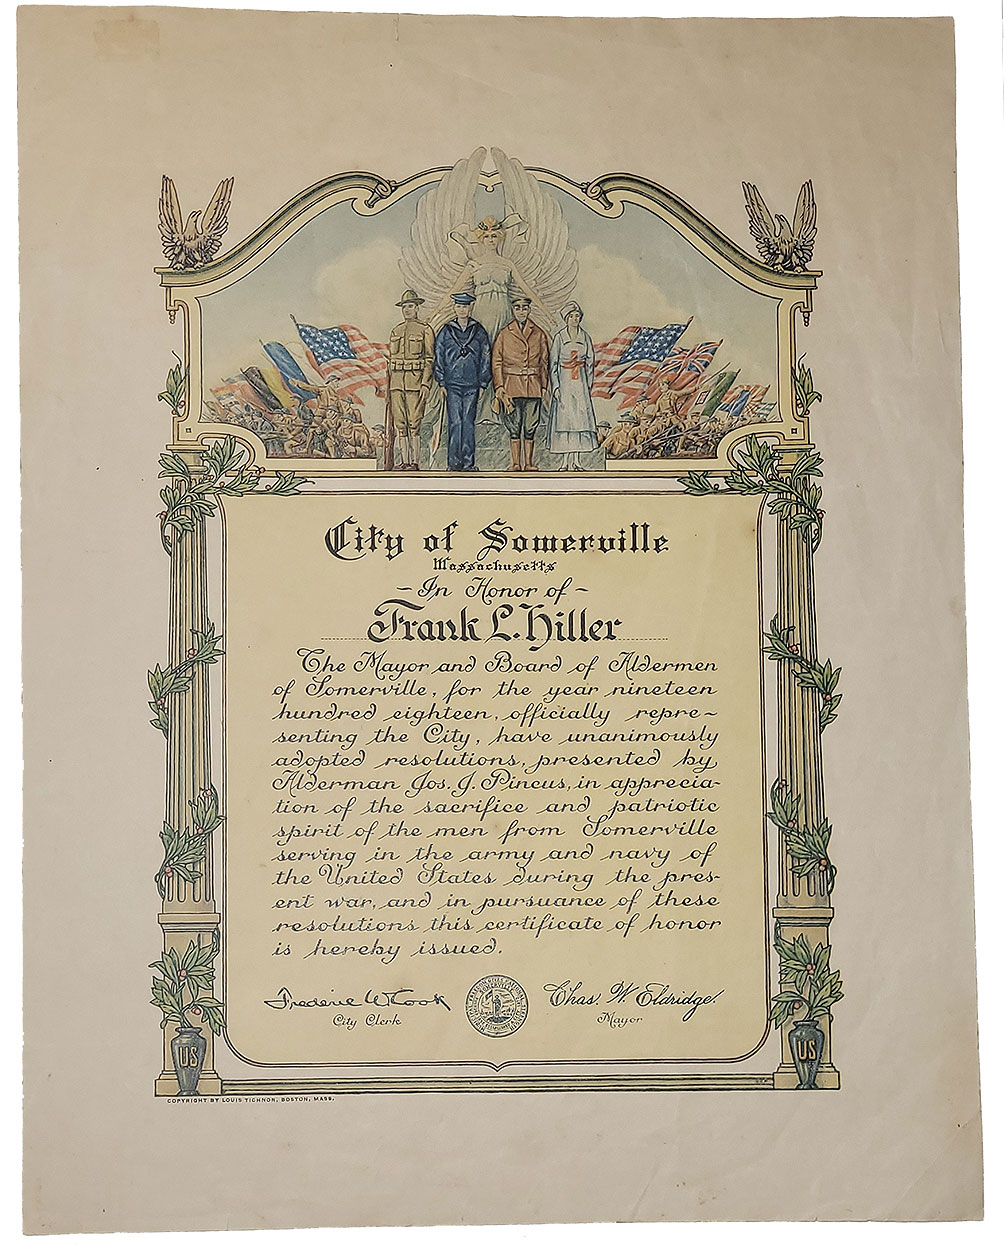 City of Somerville
Massachusetts
~ In Honor of ~
Frank L. Hiller
The Mayor and Board of Aldermen
of Somerville, for the year nineteen
hundred eighteen, officially repre~
senting the City, have unanimously
adopted resolutions, presented by
Alderman Jos. J. Pincus, in apprecia-
tion of the sacrifice and patriotic
spirit of the men from Somerville
serving in the army and navy of
the United States during the pres-
ent war, and in pursuance of these
resolutions this certificate of honor
is hereby issued.
Frederic W. Cook
City Clerk
Chas. W. Eldridge.
Mayor
US
US
COPYRIGHT BY LOUIS TICHNOR, BOSTON, MASS.